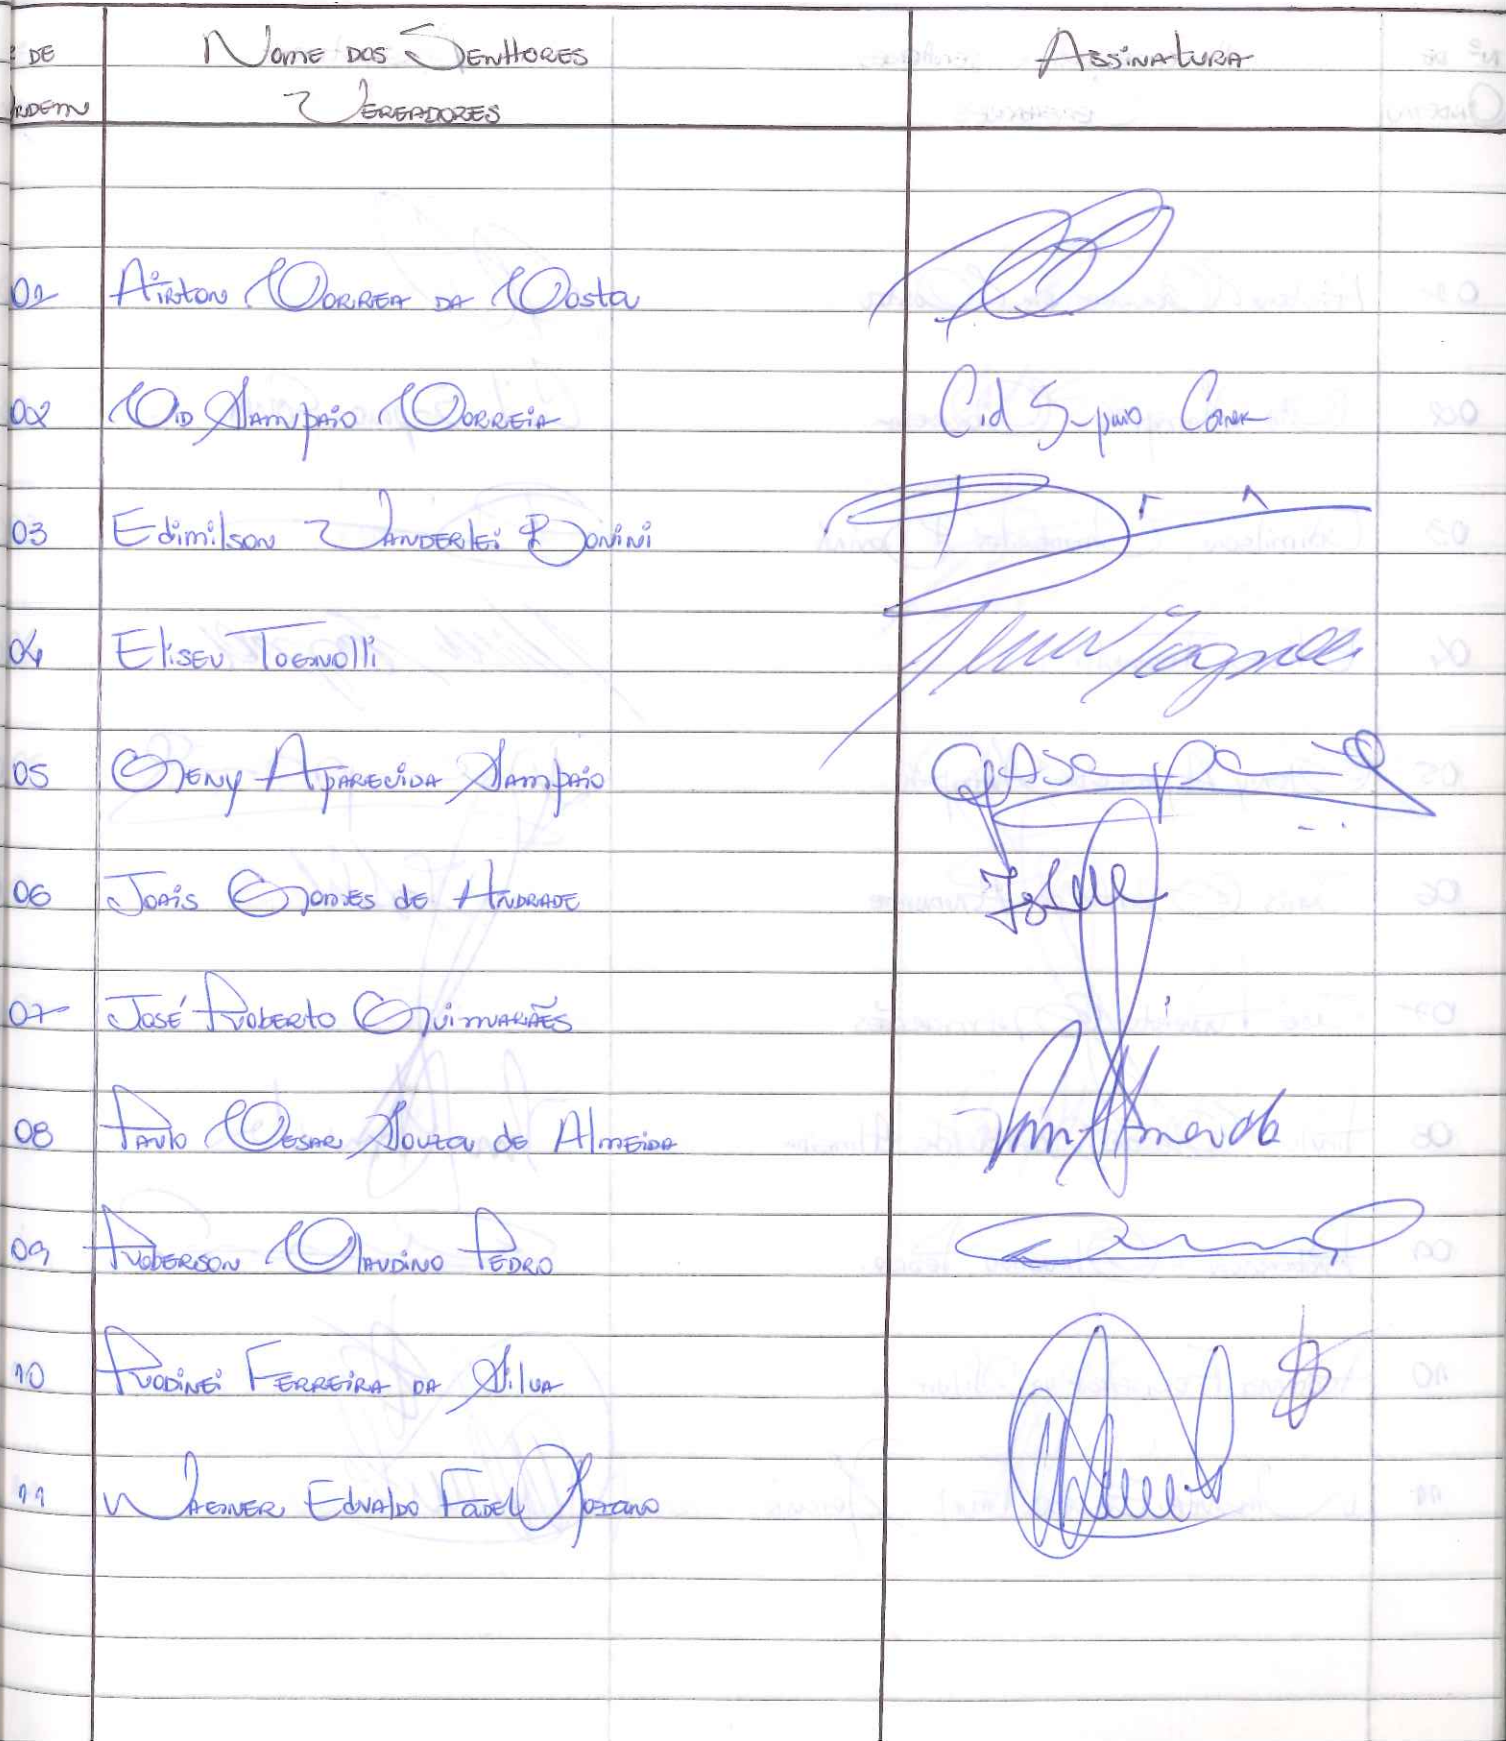 º DE Nome dos Senhores Assinatura
Ordem Vereadores
01 Airton Correa da Costa
02 Cid Sampaio Correia Cid Sampaio Correia
03 Edimilson Vanderlei Donini
04 Eliseu Tognolli Eliseu Tognolli
05 Geny Aparecida Sampaio GASampaio
06 Joais Gomes de Andrade
07 José Roberto Guimarães
08 Paulo Cesar Souza de Almeida Almeida
09 Roberson Claudino Pedro
10 Rodinei Ferreira da Silva
11 Wagner Edvaldo Fadel Lozano